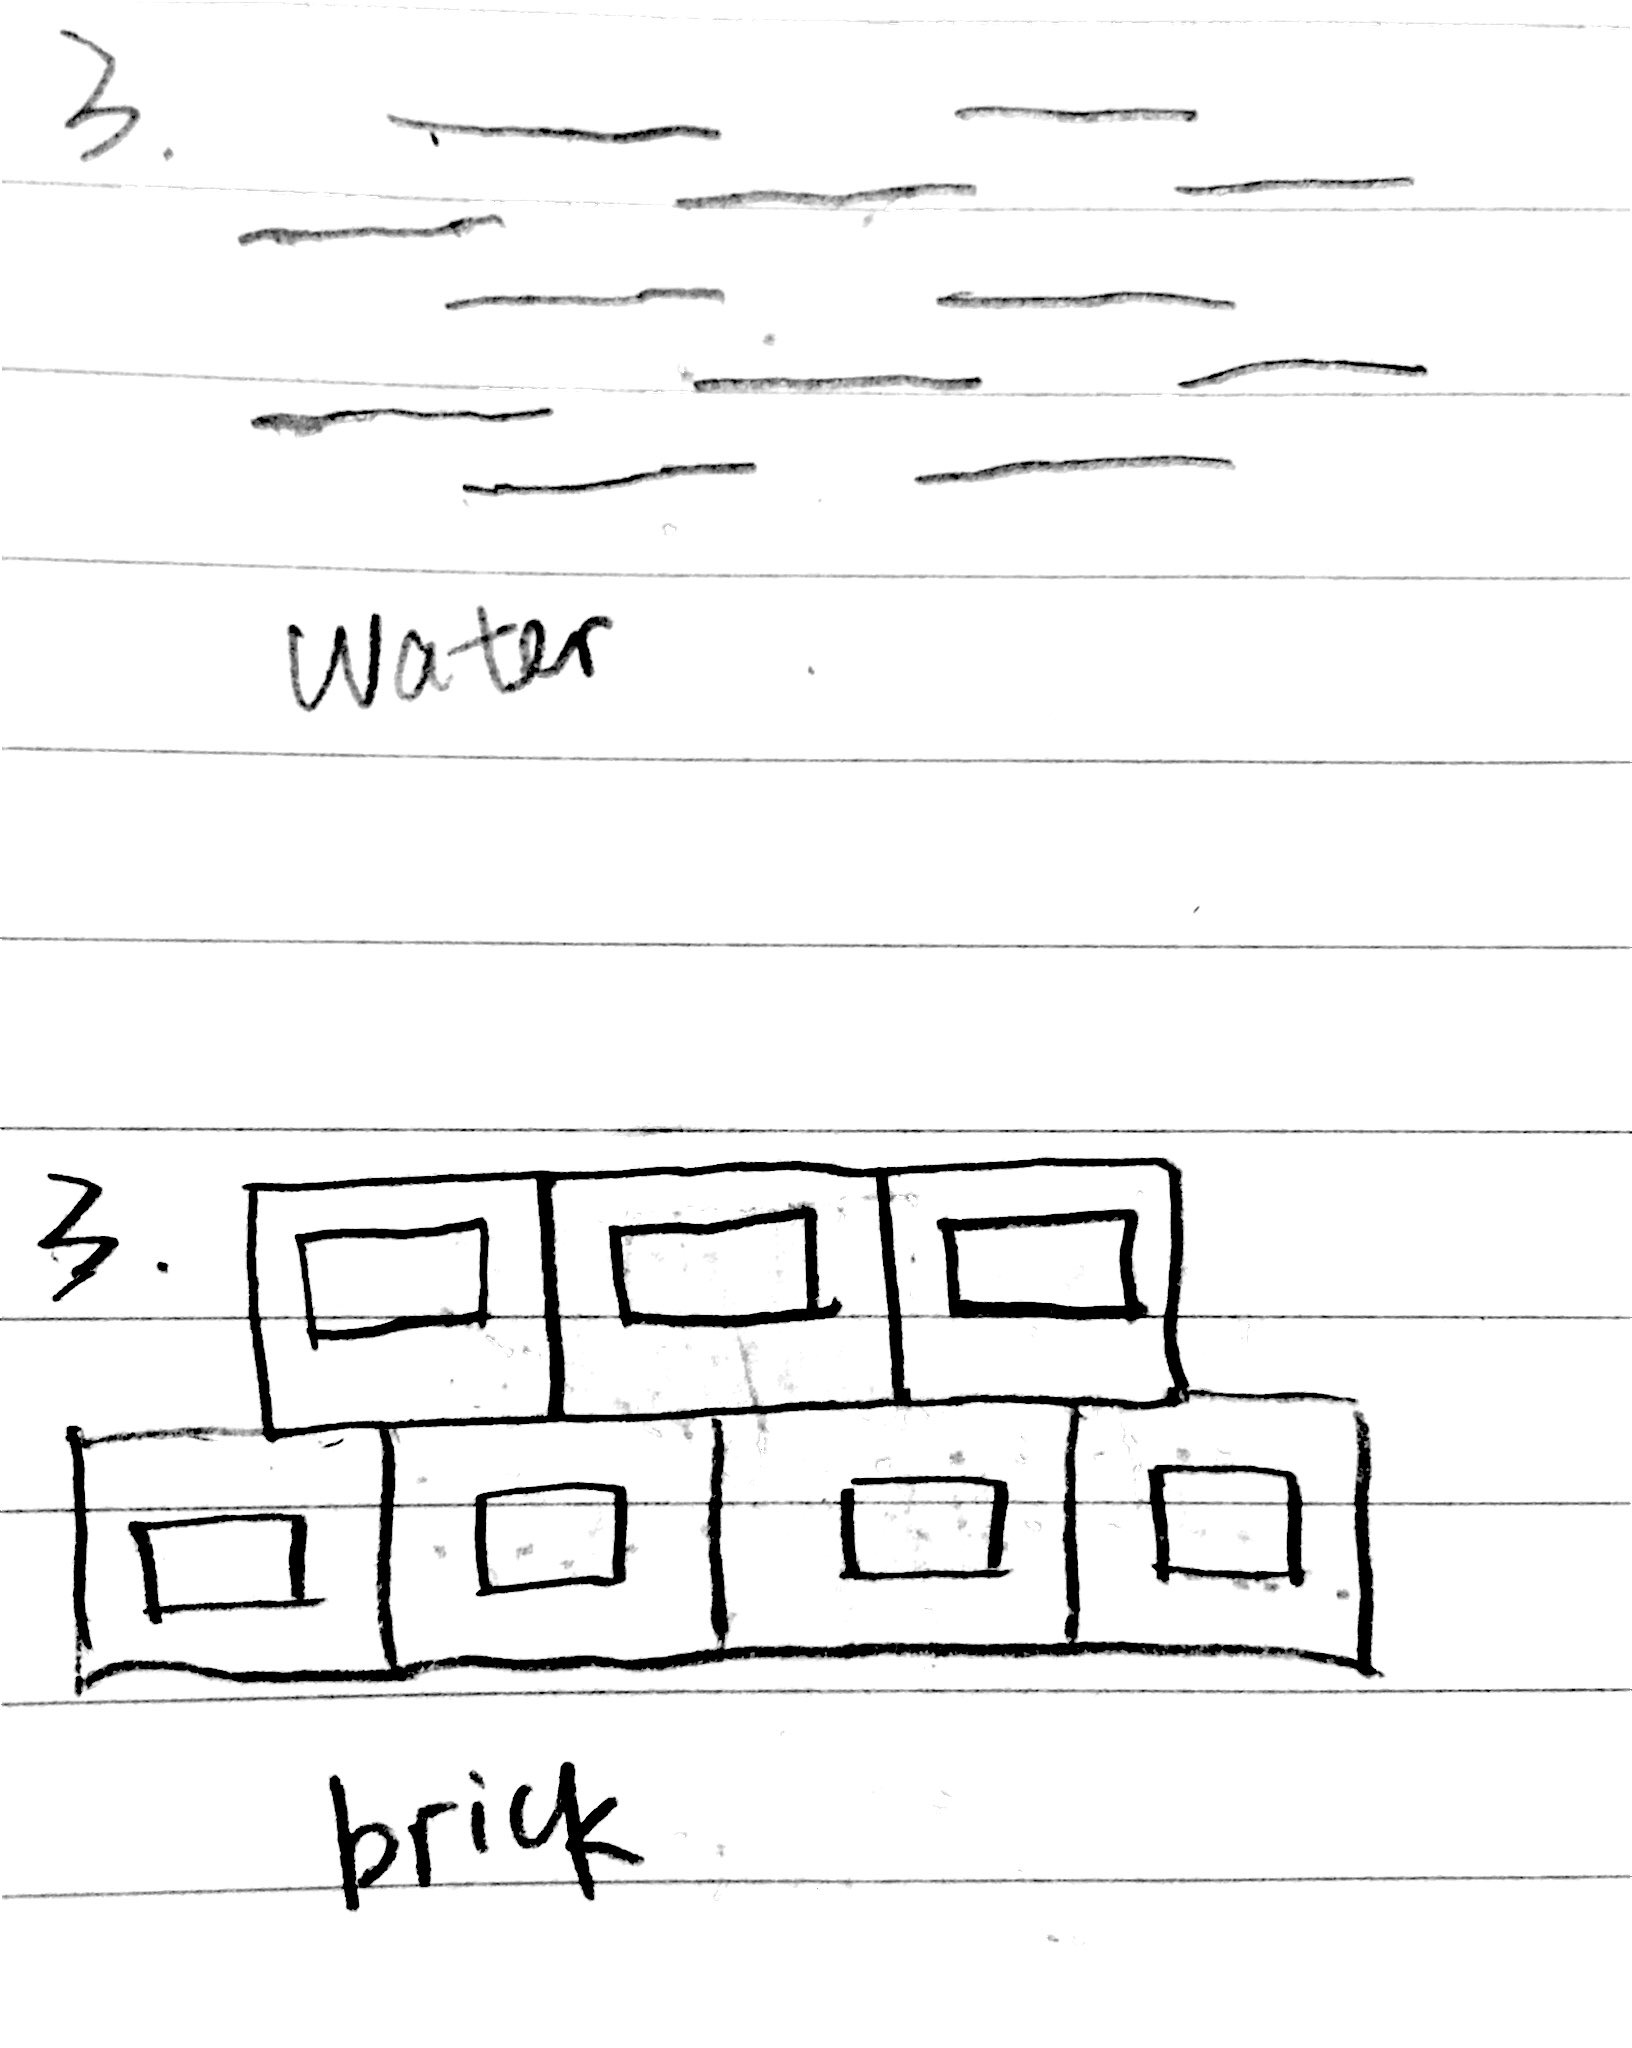 3.
Water
3.
brick